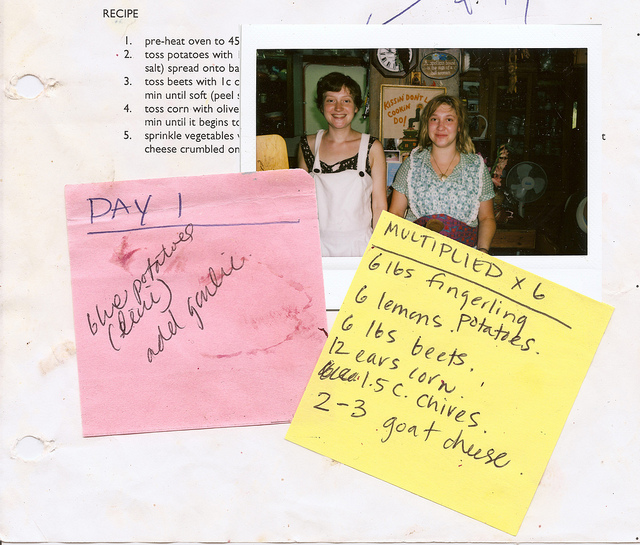 RECIPE
1. pre-heat oven to 45
2. toss potatoes with
salt) spread onto ba
3. toss beets with 1c c
min until soft (peel s
4. toss corn with olive
min until it begins to
5. sprinkle vegetables
cheese crumbled on
KISSIN DON'T L
COOKIN
DO!
DAY 1
blue potatoes
add garlic
MULTIPLIED x 6
6 lbs fingerling
potatoes.
6 lemons.
6 lbs beets.
12 ears corn.
1.5 c. chives.
2-3 goat cheese